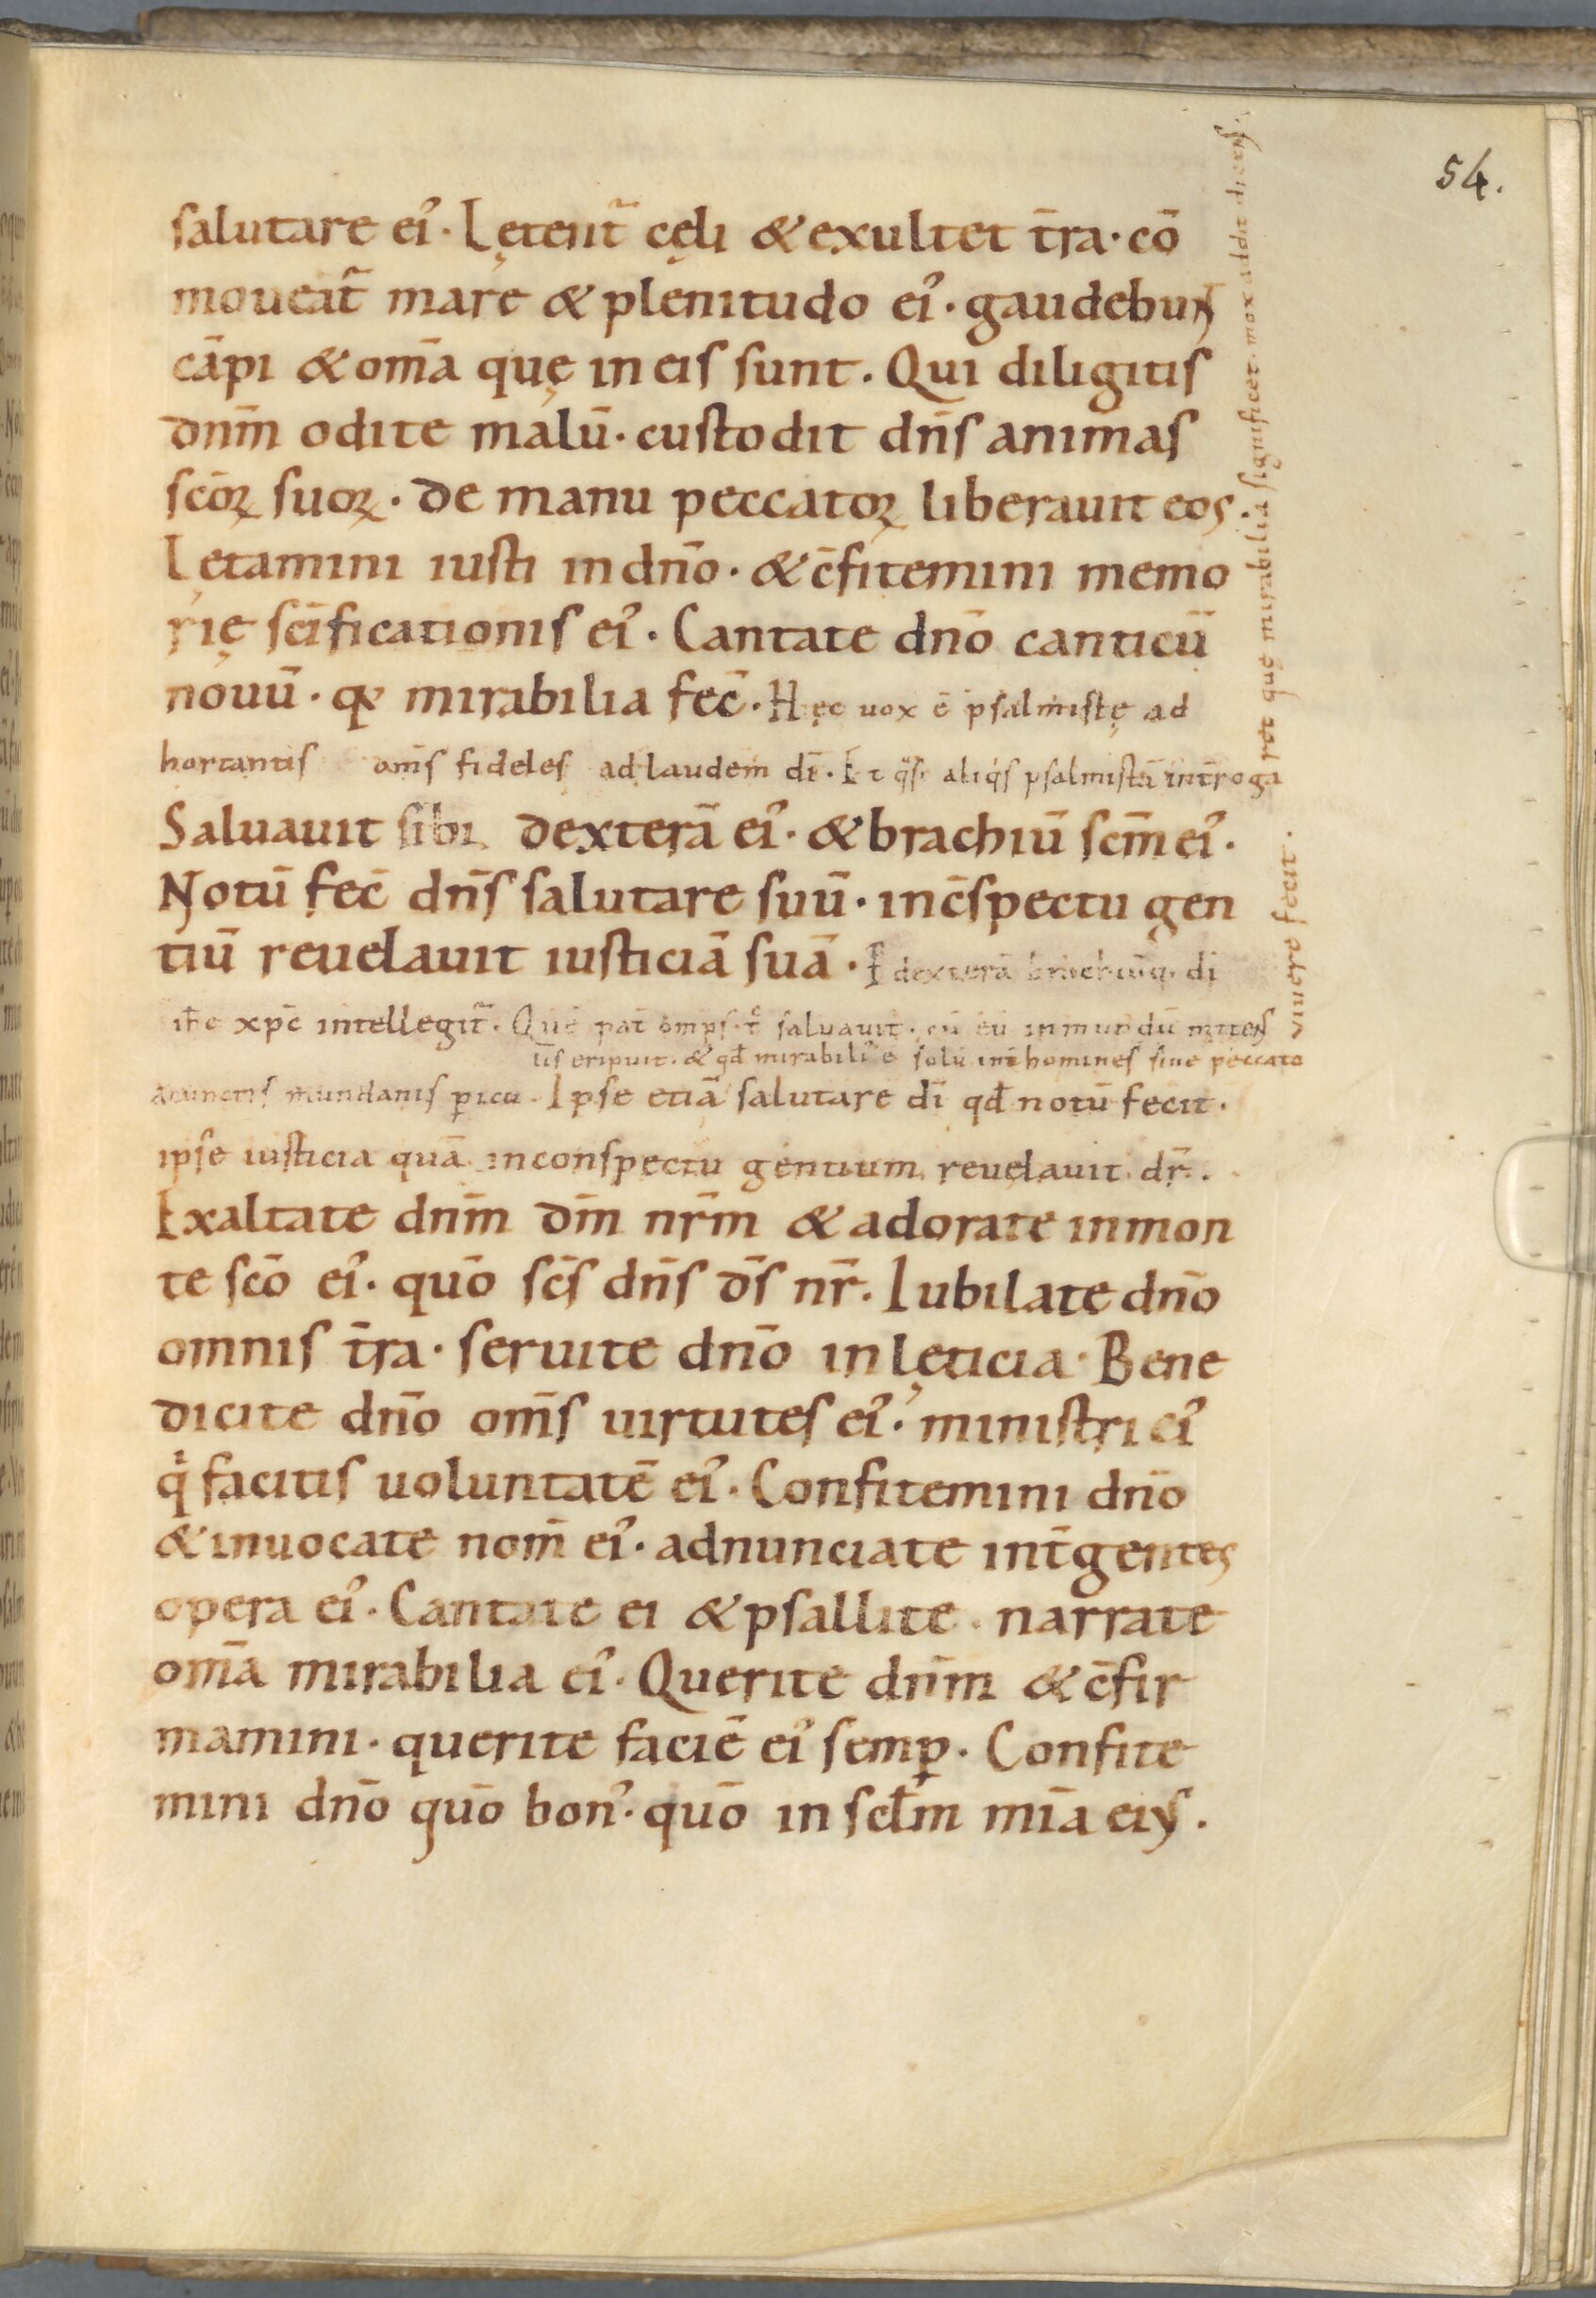 54.
salutare ei᾽. Lętent᷑ cęli & exultet t̄ra. cō
moueat᷑ mare & plenitudo ei᾽. gaudebunt
cāpi & om̄a quę in eis sunt. Qui diligitis
dnm̄ odite malū. custodit dn̄s animas
scōꝝ suoꝝ. de manu peccatoꝝ liberauit eos.
Lętamini iusti in dn̄o. & c̄fitemini memo
rię scīficationis ei᾽. Cantate dn̄o canticū
nouū. qꝛ mirabilia fec̄. Hęc uox ē psalmistę ad
hortantis om̄s fideles ad laudem dī. Et q̄si aliqͥs psalmistā int̄roga
ret quę mirabilia significet. mox addit dicens.
Saluauit sibi dexterā ei᾽. & brachiū scm̄ ei᾽.
Notū fec̄ dn̄s salutare suū. in c̄spectu gen
tiū reuelauit iusticiā suā. P dexterā brachiūq. di
ih̄c xp̄c intellegit᷑. Quē pat̄ omps. t᷑ saluauit. cū eū in mundū mittens
uiuere fecit.
lis eripuit. & qd̄ mirabili᾽ ē solū int̄ homines sine peccato
a cunctis mundanis ꝑicu. Ipse etiā salutare dī qd̄ notū fecit.
ipse iusticia quā in conspectu gentium reuelauit dr̄.
Exaltate dnm̄ dm̄ nr̄m & adorate in mon
te scō ei᾽. quō sc̄s dn̄s ds̄ nr̄. Iubilate dn̄o
omnis t̄ra. seruite dn̄o in lęticia. Bene
dicite dn̄o om̄s uirtutes ei᾽. ministri ei᾽
qͥ facitis uoluntatē ei᾽. Confitemini dn̄o
& inuocate nom̄ ei᾽. adnunciate int̄ gentes
opera ei᾽. Cantate ei & psallite. narrate
om̄a mirabilia ei᾽. Querite dnm̄ & c̄fir
mamini. querite faciē ei᾽ semꝑ. Confite
mini dn̄o quō bon᾽. quō in sctm̄ mīa eius.